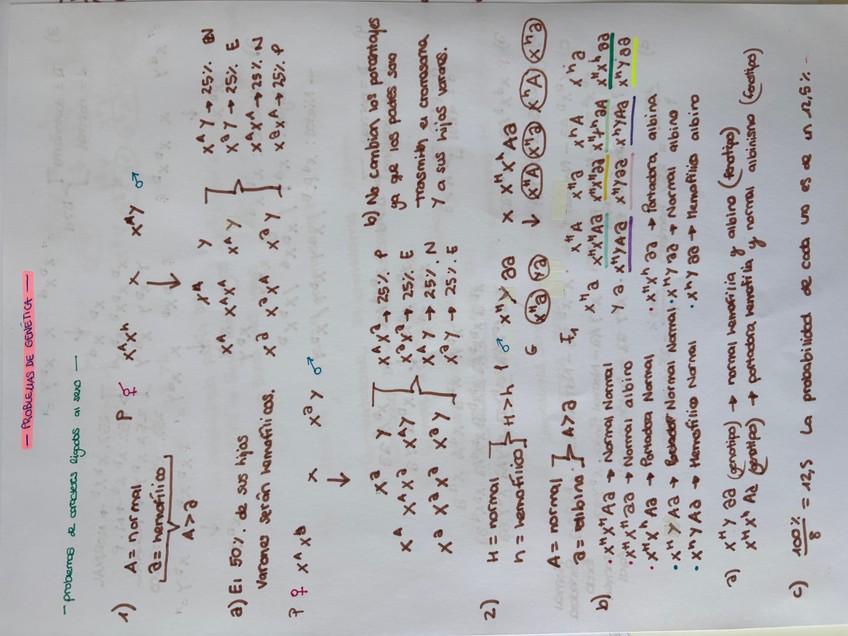 — PROBLEMAS DE GENÉTICA —
— problemas de caracteres ligados al sexo —
1)
A = normal
a = hemofílico
A > a
P ♀ X^A X^h x X^A Y ♂
↓
X^A Y
X^A X^A X^A X^A Y
X^a X^a X^A X^a Y
X^A Y → 25% EN
X^a Y → 25% E
X^A X^A → 25% N
X^a X^A → 25% P
a) El 50% de sus hijos
varones serán hemofílicos.
P ♀ X^A X^a x X^a Y ♂
↓
X^a Y
X^A X^A X^a X^A Y
X^a X^a X^a X^a Y
X^A X^a → 25% P
X^a X^a → 25% E
X^A Y → 25% N
X^a Y → 25% E
b) No cambian los porcentajes
ya que los padres solo
trasmiten el cromosoma
Y a sus hijos varones.
2)
H = normal
h = hemofílico
H > h
A = normal
a = albino
A > a
♂ X^H Y aa x X^H X^h Aa ♀
↓
G X^H a Y a X^H A X^H a X^h A X^h a
F1 X^H A X^H a X^h A X^h a
X^H a X^H X^H Aa X^H X^H aa X^H X^h aA X^H X^h aa
Y a X^H Y Aa X^H Y aa X^h Y Aa X^h Y aa
b)
· X^H X^H Aa → Normal Normal
· X^H X^H aa → Normal albino
· X^H X^h Aa → Portadora Normal
· X^H X^h aa → Portadora albina
· X^H Y Aa → Normal Normal
· X^H Y aa → Normal albino
· X^h Y Aa → Hemofílico Normal
· X^h Y aa → Hemofílico albino
a) X^H Y aa (genotipo) → normal hemofilia y albino (fenotipo)
X^H X^h Aa (genotipo) → portadora hemofilia y normal albinismo (fenotipo)
c) 100% / 8 = 12,5 La probabilidad de cada uno es de un 12,5% -